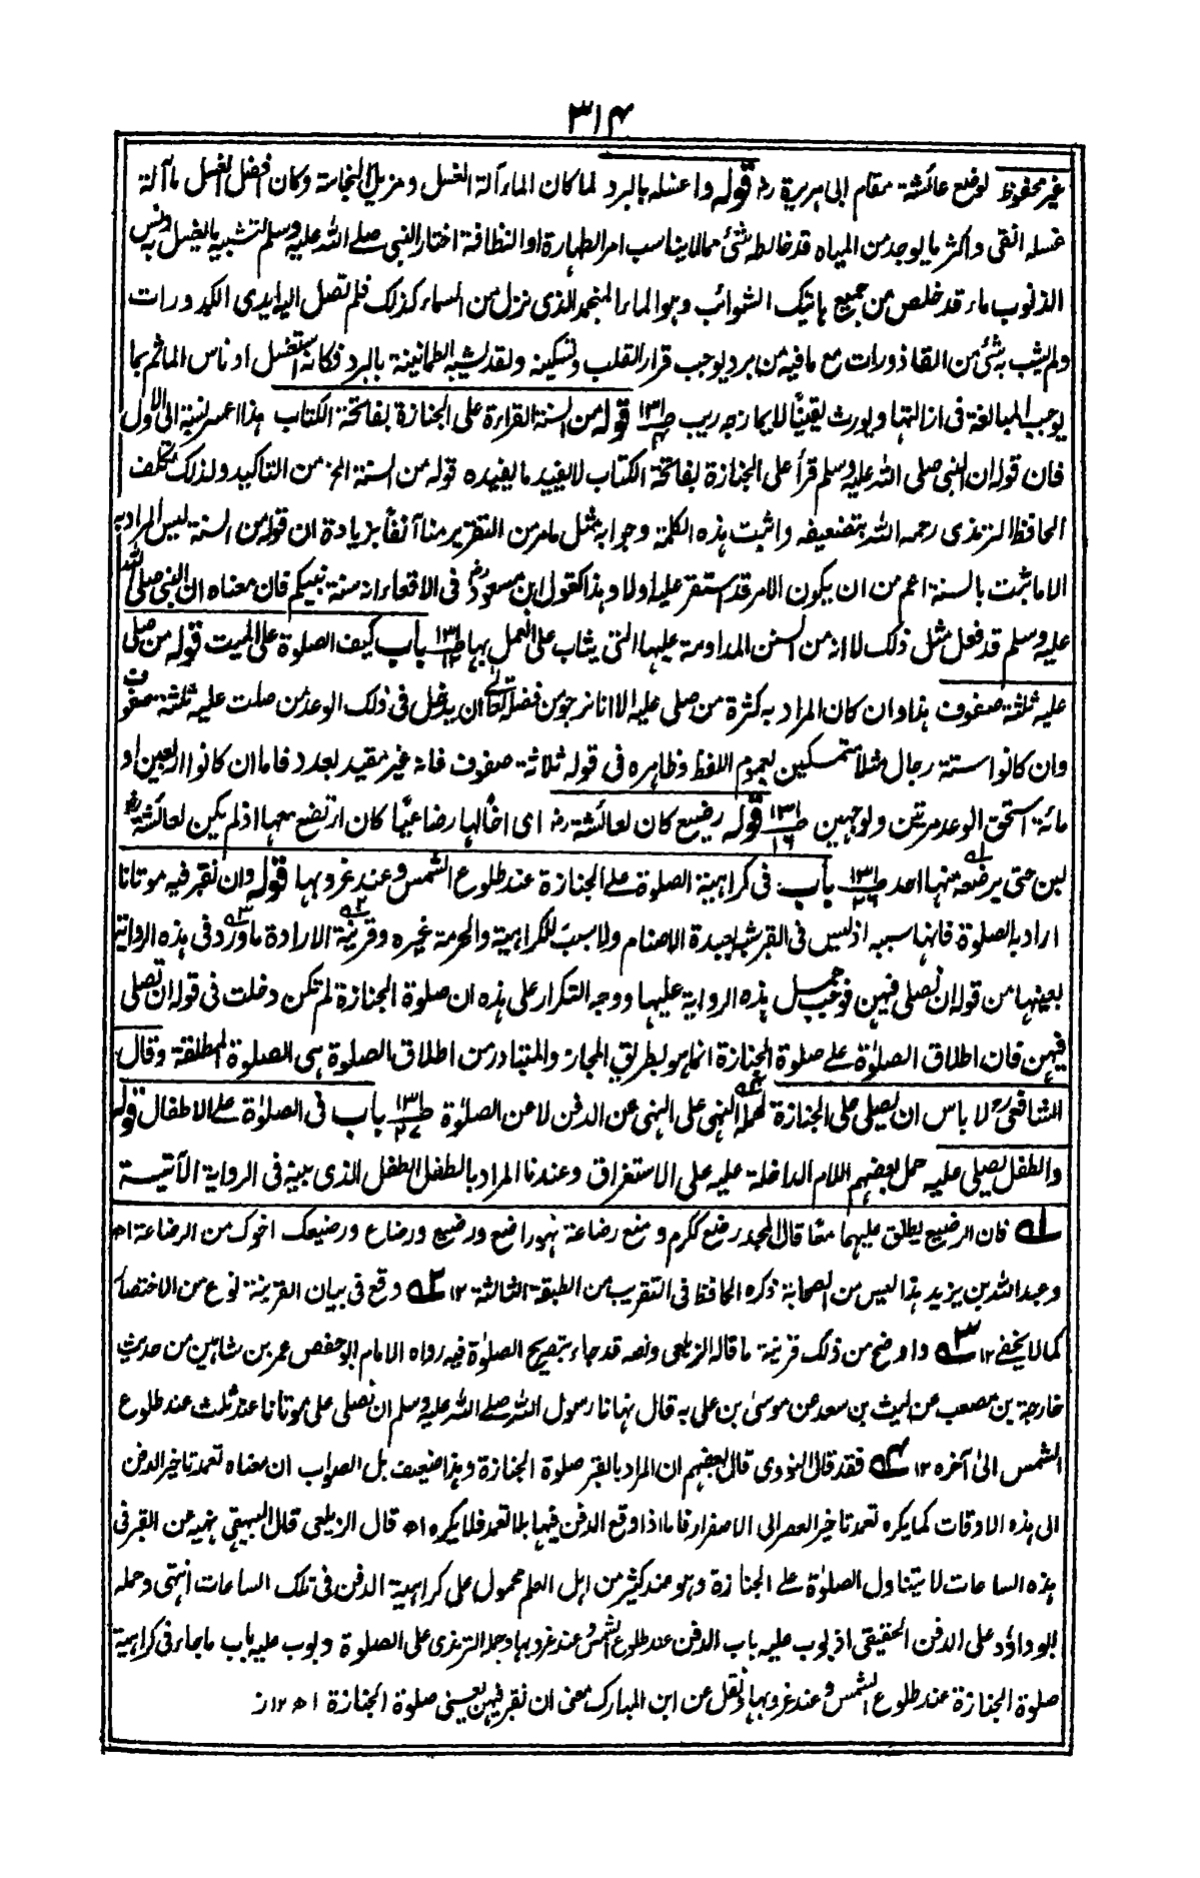 ٣١٤
غير محفوظ لوضع عائشة مقام ابى هريرة رض قوله واغسله بالبرد لما كان الماء آلة الغسل ومزيل النجاسة وكان افضل الغسل ما آلة
غسله انقى واكثر ما يوجد من المياه قد خالطه شئ مما لا يناسب امر الطهارة او النظافة اختار النبى صلى الله عليه وسلم لتشبيه ما يغسل به دنس
الذنوب ماء قد خلص من جميع هاتيك الشوائب وهو الماء المنجمد الذى نزل من السماء كذلك فلم تصل اليه ايدى الكدورات
ولم يشب بشئ من القاذورات مع ما فيه من برد يوجب قرار القلب وتسكينه ولقد شبه الطمانينة بالبرد فكانه استغسل ادناس المآثم بما
يوجب المبالغة فى ازالتها ويورث يقينًا لا يمازجه ريب قوله من السنة القراءة على الجنازة بفاتحة الكتاب هذا اعسر نسبة الى الاول
فان قوله ان النبى صلى الله عليه وسلم قرأ على الجنازة بفاتحة الكتاب لا يفيد ما يفيده قوله من السنة الخ من التاكيد ولذلك تكلف
الحافظ الترمذى رحمه الله بتضعيفه واثبت هذه الكلمة وجوابه مثل ما مر من التقرير منا آنفاً بزيادة ان قوله من السنة ليس المراد به
الا ما ثبت بالسنة اعم من ان يكون الامر قد استقر عليه اولا وهذا كقول ابن مسعود رض فى الاقعاء انه سنة نبيكم فان معناه ان النبى صلى الله
عليه وسلم قد فعل مثل ذلك لا انه من السنن المداومة عليها التى يثاب على العمل بها باب كيف الصلوة على الميت قوله من صلى
عليه ثلثة صفوف هذا وان كان المراد به كثرة من صلى عليه الا انا نرجو من فضله تعالى ان يدخل فى ذلك الوعد من صلت عليه ثلثة صفوف
وان كانوا ستة رجال مثلا متمسكين بعموم اللفظ وظاهره فى قوله ثلاثة صفوف فانه غير مقيد بعدد فاما ان كانوا اربعين او
مائة استحق الوعد مرتين ولوجهين قوله رضيع كان لعائشة رض اى اخًا لها رضاعيًا كان ارتضع معها اذ لم يكن لعائشة رض
لبن حتى يرضعه منها احد باب فى كراهية الصلوة على الجنازة عند طلوع الشمس وعند غروبها قوله وان نقبر فيه موتانا
اراد به الصلوة فانها سببه اذ ليس فى القبر شبه عبدة الاصنام ولا سبب للكراهية والحرمة غيره وقرينة الارادة ما ورد فى هذه الرواية
بعينها من قوله ان نصلى فيهن فوجب حمل هذه الرواية عليها ووجه التكرار على هذه ان صلوة الجنازة لم تكن دخلت فى قوله ان نصلى
فيهن فان اطلاق الصلوٰة على صلوة الجنازة انما هو بطريق المجاز والمتبادر من اطلاق الصلوة هى الصلوة المطلقة وقال
الشافعى رح لا باس ان يصلى على الجنازة لحمله النهى على النهى عن الدفن لا عن الصلوٰة باب فى الصلوٰة على الاطفال قوله
والطفل يصلى عليه حمل بعضهم اللام الداخلة عليه على الاستغراق وعندنا المراد بالطفل الطفل الذى بينه فى الرواية الآتية
له فان الرضيع يطلق عليهما معًا قال المجد رضع ككرم ومنع رضاعة فهو راضع ورضيع ورضاع ورضيعك اخوك من الرضاعة اھ
وعبدالله بن يزيد هذا ليس من الصحابة ذكره الحافظ فى التقريب من الطبقة الثالثة ١٢ ٢ه وقع فى بيان القرينة نوع من الاختصار
كما لا يخفى ١٢ ٣ه واوضح من ذلك قرينة ما قاله الزيلعى ونصه قد جاء بتصريح الصلوٰة فيه رواه الامام ابو حفص عمر بن شاهين من حديث
خارجة بن مصعب عن ليث بن سعد عن موسى بن على به قال نهانا رسول الله صلى الله عليه وسلم ان نصلى على موتانا عند ثلث عند طلوع
الشمس الى آخره ١٢ ٤ه فقد قال النووى قال بعضهم ان المراد بالقبر صلوة الجنازة وهذا ضعيف بل الصواب ان معناه تعمد تاخير الدفن
الى هذه الاوقات كما يكره تعمد تاخير العصر الى الاصفرار فاما اذا وقع الدفن فيها بلا تعمد فلا يكره اھ قال الزيلعى قال البيهقى نهيه عن القبر فى
هذه الساعات لا يتناول الصلوٰة على الجنازة وهو عند كثير من اهل العلم محمول على كراهية الدفن فى تلك الساعات انتهى وحمله
ابو داؤد على الدفن الحقيقى اذ بوب عليه باب الدفن عند طلوع الشمس وعند غروبها وحمله الترمذى على الصلوة وبوب عليه باب ما جاء فى كراهية
صلوة الجنازة عند طلوع الشمس وعند غروبها ونقل عن ابن المبارك معنى ان نقبر فيهن يعنى صلوة الجنازة اھ ١٢ ز